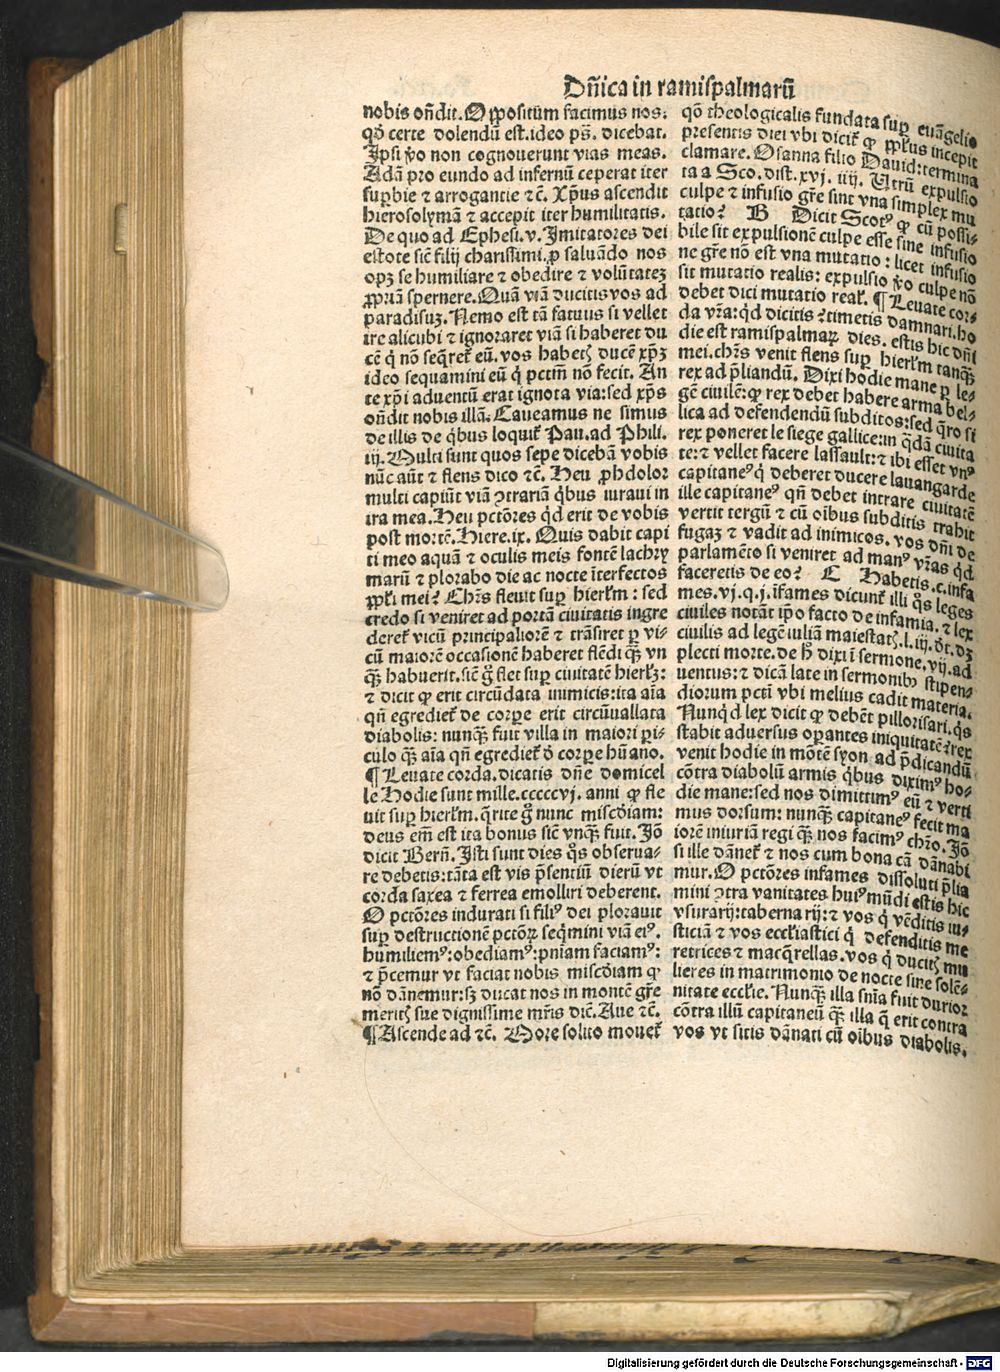 Dñica in ramispalmarū
nobis oñdit. O ꝓpositum facimus nos:
qď certe dolendū est. ideo pš. dicebat.
Ipsi ꝟo non cognouerunt vias meas.
Adā pro eundo ad infernū ceperat iter
supbie ⁊ arrogantie ⁊č. Xp̄us ascendit
hierosolymā ⁊ accepit iter humilitatis.
De quo ad Ephesi. v. Imitatores dei
estote sič filij charissimi. ꝓ saluādo nos
opꝫ se humiliare ⁊ obedire ⁊ volūtateꝫ
ꝓpriā spernere. Quā viā ducitis vos ad
paradisuꝫ. Nemo est tā fatuus si vellet
ire alicubi ⁊ ignoraret viā si haberet du
cē q̇ nō seq̇ret̄ eū. vos habetꝭ ducē xp̄ꝫ
ideo sequamini eū q̇ pctm̄ nō fecit. An
te xp̄i aduentū erat ignota via: sed xp̄s
oñdit nobis illā. Caueamus ne simus
de illis de q̇bus loquit̄ Pau. ad Phili.
iij. Multi sunt quos sepe dicebā vobis
nūc aūt ⁊ flens dico ⁊č. Heu ꝓhdolor
multi capiūt viā ꝯtrariā q̇bus iuraui in
ira mea. Heu pctōres qď erit de vobis
post mortē. Hiere. ix. Quis dabit capi
ti meo aquā ⁊ oculis meis fontē lachry
marū ⁊ plorabo die ac nocte īterfectos
ppłi mei? Chr̄s fleuit sup hierłm: sed
credo si veniret ad portā ciuitatis ingre
deret̄ vicū principaliorē ⁊ trāsiret ꝑ vi-
cū maiorē occasionē haberet flēdi q̄ꝫ vn
q̄ꝫ habuerit. sič g̊ flet sup ciuitatē hierłꝫ:
⁊ dicit ꝙ erit circūdata inimicis: ita aīa
qñ egrediet̄ de corpe erit circūuallata
diabolis: nunq̄ꝫ fuit villa in maiori pi-
culo q̄ꝫ aīa qñ egrediet̄ ď corpe hūano.
¶ Leuate corda. dicatis dñe domicel
le Hodie sunt mille.cccccvj. anni ꝙ fle
uit sup hierłm. q̄rite g̊ nunc miscdiam:
deus em̄ est ita bonus sič vnq̄ꝫ fuit. Jō
dicit Berñ. Isti sunt dies q̊s obserua-
re debetis: tāta est vis p̄sentiū dierū vt
corda saxea ⁊ ferrea emolliri deberent.
O pctōres indurati si filiꝰ dei plorauit
sup destructionē pctōꝝ seq̇mini viā eiꝰ.
humiliemꝰ: obediamꝰ: pñiam faciamꝰ:
⁊ p̄cemur vt faciat nobis miscdiam ꝙ
nō dānemur: sꝫ ducat nos in montē gr̄e
meritꝭ sue dignissime mr̄is dič. Aue ⁊č.
¶ Ascende ad ⁊č. More solito mouet̄
qō theologicalis fundata sup euāgelio
presentis diei vbi dicit̄ ꝙ ppłus incepit
clamare. Osanna filio Dauid: termina
ta a Sco. dist. xvj. iiij. Utrū expulsio
culpe ⁊ infusio gr̄e sint vna simplex mu
tatio? B Dicit Scotꝰ ꝙ cū possi-
bile sit expulsionē culpe esse sine infusio
ne gr̄e nō est vna mutatio: licet infusio
sit mutatio realis: expulsio ꝟo culpe nō
debet dici mutatio real̄. ¶ Leuate cor-
da vr̄a: qď dicitis? timetis damnari. ho
die est ramispalmaꝝ dies. estis hic dñi
mei. chr̄s venit flens sup hierłm tanq̄ꝫ
rex ad p̄liandū. Dixi hodie mane ꝑ le-
gē ciuilē: ꝙ rex debet habere arma bel-
lica ad defendendū subditos: sed q̄ro si
rex poneret le siege gallice: in q̇dā ciuita
te: ⁊ vellet facere lassault: ⁊ ibi esset vnꝰ
capitaneꝰ q̇ deberet ducere lauangarde
ille capitaneꝰ qñ debet intrare ciuitatē
vertit tergū ⁊ cū oībus subditis trahit
fugaꝫ ⁊ vadit ad inimicos. vos dñi de
parlamēto si veniret ad manꝰ vr̄as qď
faceretis de eo? C Habetis. c. infa
mes. vj. q. j. īfames dicunt̄ illi q̊s leges
ciuiles notāt ip̄o facto de infamia. ⁊ lex
ciuilis ad legē iuliā maiestatꝭ. l. iij. dr̄. dꝫ
plecti morte. de h̊ dixi ī sermone. vij. ad
uentus: ⁊ dicā late in sermonibꝰ stipen-
diorum pctī vbi melius cadit materia.
Nunq̇d lex dicit ꝙ debēt pillorisari. q̊s
stabit aduersus opantes iniquitatē? rex
venit hodie in mōtē syon ad p̄dicandū
cōtra diabolū armis q̇bus diximꝰ ho-
die mane: sed nos dimittimꝰ eū ⁊ verti
mus dorsum: nunq̄ꝫ capitaneꝰ fecit ma
iorē iniuriā regi q̄ꝫ nos facimꝰ chr̄o. Jō
si ille dānet̄ ⁊ nos cum bona cā dānabi
mur. O pctōres infames dissoluti p̄lia
mini ꝯtra vanitates huiꝰ mūdi estis hic
vsurarij: tabernarij: ⁊ vos q̇ vēditis iu-
sticiā ⁊ vos ecclīastici q̇ defenditis me
retrices ⁊ macq̄rellas. vos q̇ ducitꝭ mu
lieres in matrimonio de nocte sine solē-
nitate ecclīe. Nunq̄ꝫ illa sñia fuit durior
cōtra illū capitaneū q̄ꝫ illa q̄ erit contra
vos vt sitis dānati cū oībus diabolis.
Digitalisierung gefördert durch die Deutsche Forschungsgemeinschaft - DFG